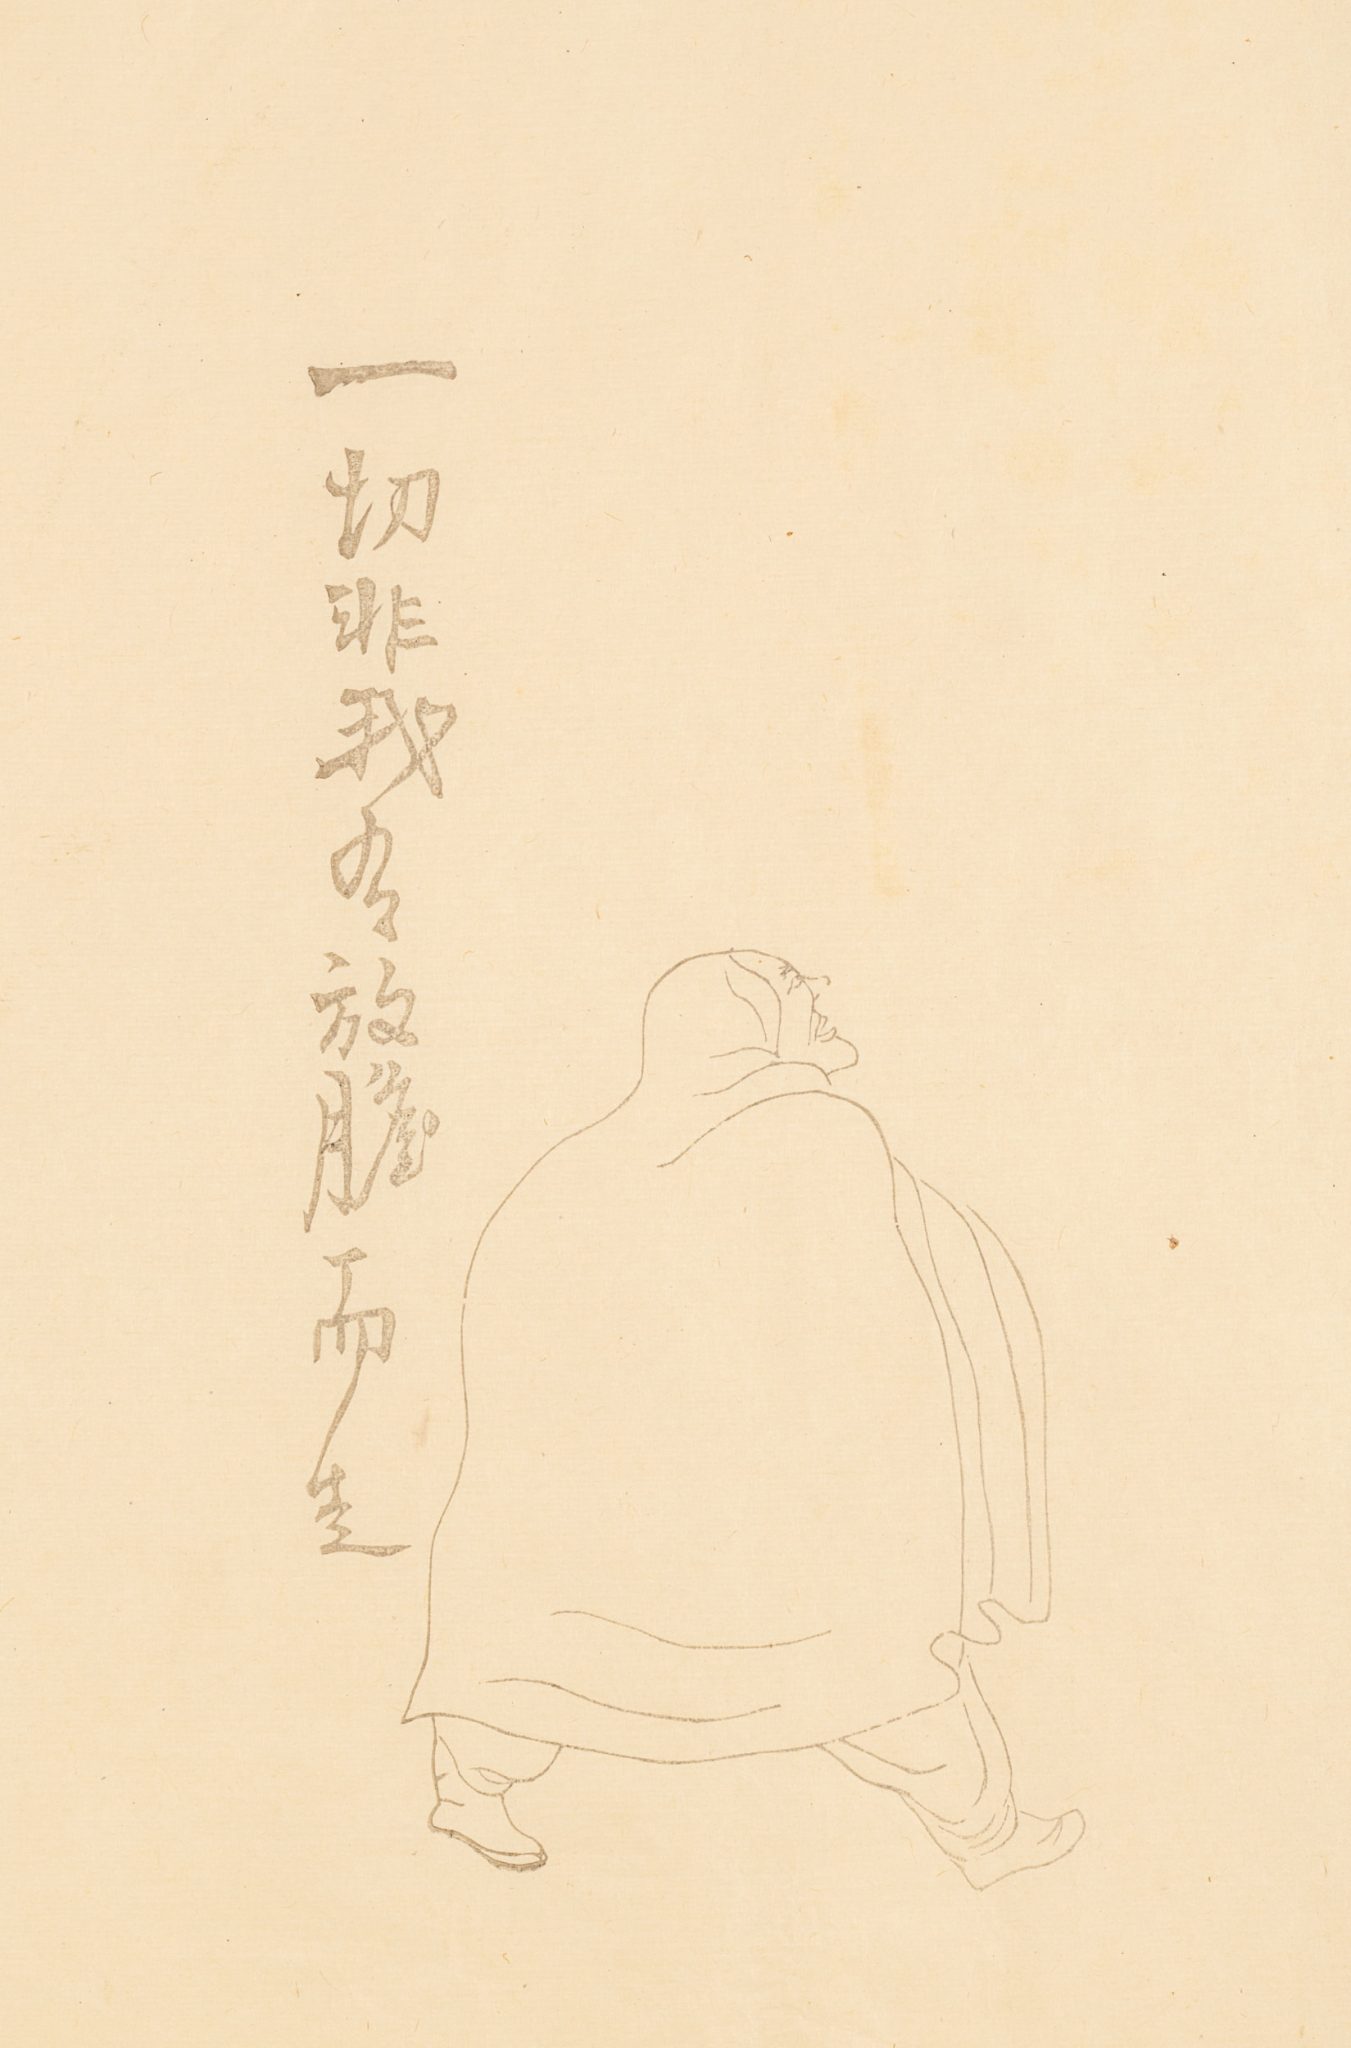 一切非我有放膽而走